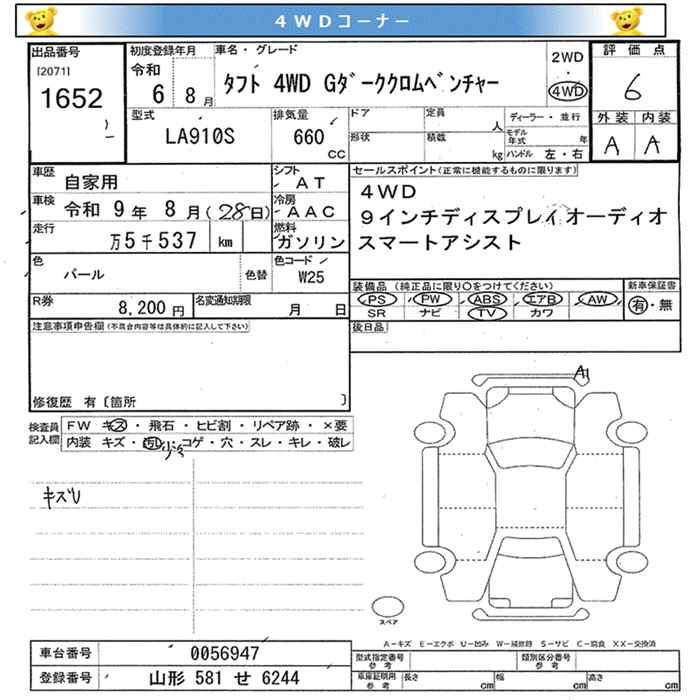 4WDコーナー
出品番号
[2071]
1652
初度登録年月
令和
6 8月
車名・グレード
タフト 4WD Gダーククロムベンチャー
2WD
・
4WD
評価点
6
外装 内装
A A
型式
LA910S
排気量
660
CC
ドア
形状
定員
人
積載
kg
ディーラー・並行
モデル年式 年
ハンドル 左・右
車歴
自家用
車検 令和 9年 8月(28日)
走行
万5千537 km
色
パール
色替
シフト
AT
冷房
AAC
燃料
ガソリン
色コード
W25
セールスポイント(正常に機能するものに限ります)
4WD
9インチディスプレイオーディオ
スマートアシスト
R券
8,200円
名変通知期限
月 日
装備品 (純正品に限り○をつけてください)
PS PW ABS エアB AW
SR ナビ TV カワ
新車保証書
有・無
後日品
注意事項申告欄(不具合内容等は具体的に記入して下さい)
修復歴 有〔箇所 〕
検査員
記入欄
FW キズ・飛石・ヒビ割・リペア跡・×要
内装 キズ・汚レ・コゲ・穴・スレ・キレ・破レ
少々
キズU
A1
スペア
A−キズ E−エクボ U−凹み W−補修跡 S−サビ C−腐食 XX−交換済
車台番号 0056947
登録番号 山形 581 せ 6244
型式指定番号
参考
類別区分番号
参考
車庫証明用
参考
長さ cm 幅 cm 高さ cm